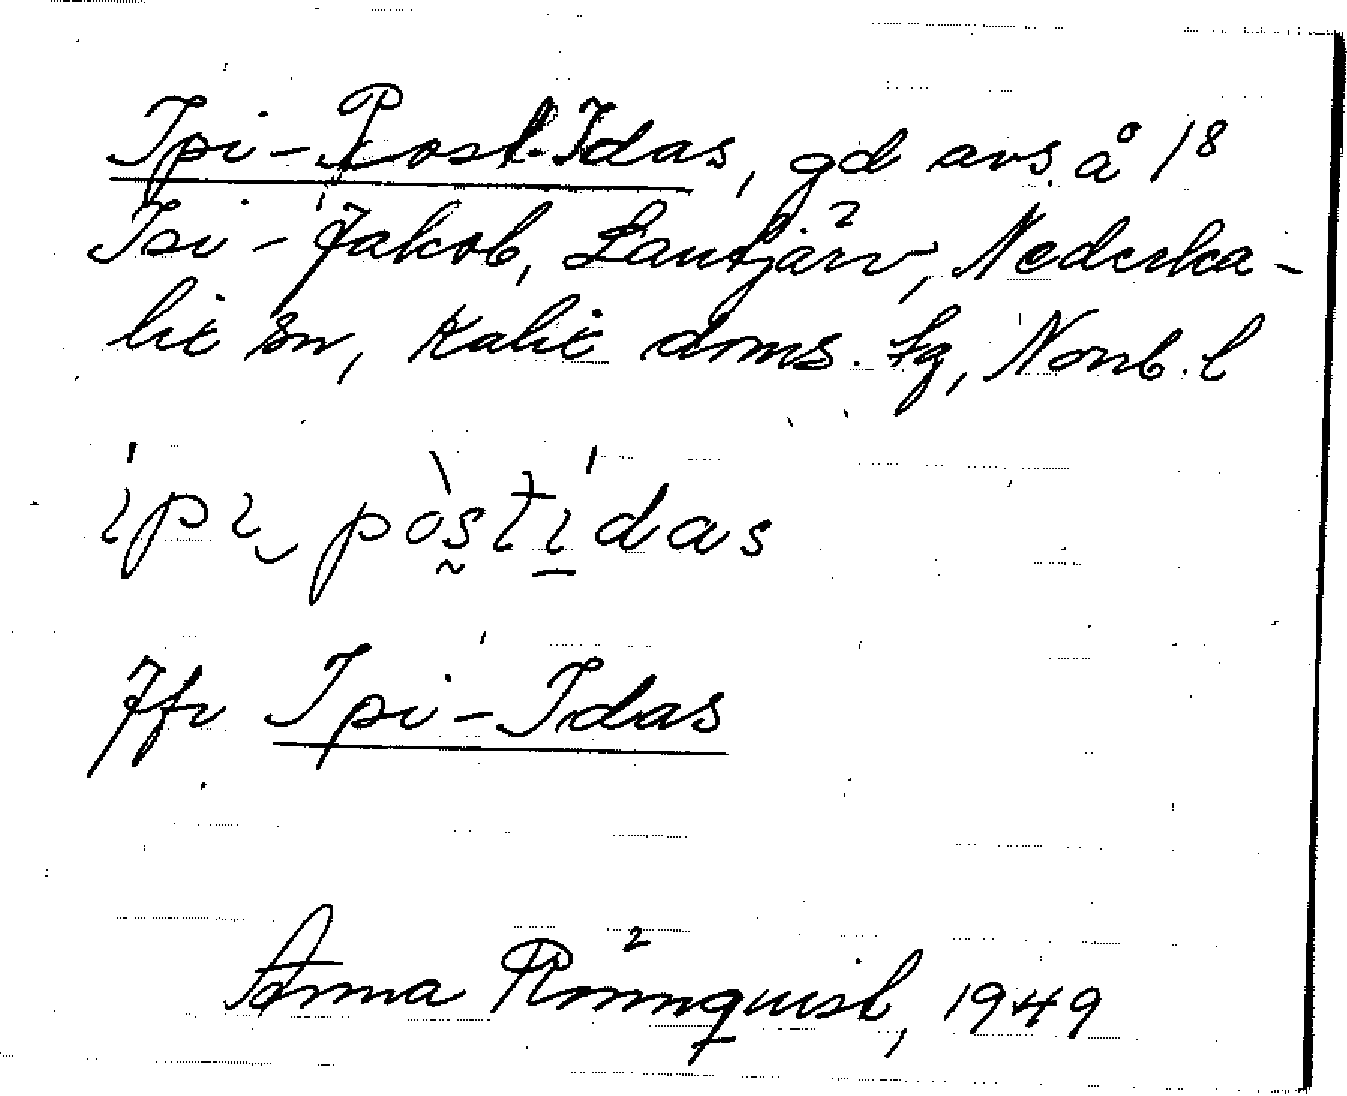 Ipi-Post-Idas, gd avs. å 1⁸
Isi-Jakob, Lantjärv, Nederka-
lix sn, Kalix doms. fg, Norrb. l
ipi pòstidas
Jfr Ipi-Idas
Anna Rönnquist, 1949